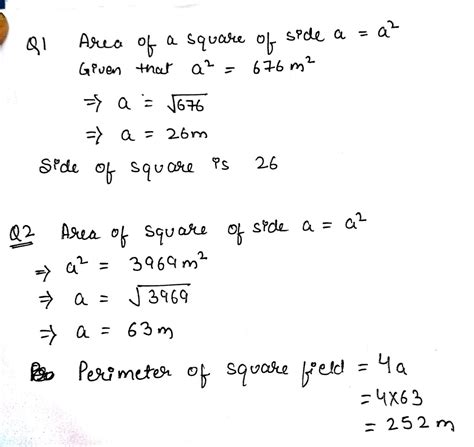 Q1 Area of a square of side a = a²
Given that a² = 676 m²
⇒ a = √676
⇒ a = 26m
Side of square is 26
Q2 Area of square of side a = a²
⇒ a² = 3969 m²
⇒ a = √3969
⇒ a = 63 m
Perimeter of square field = 4a
= 4×63
= 252 m